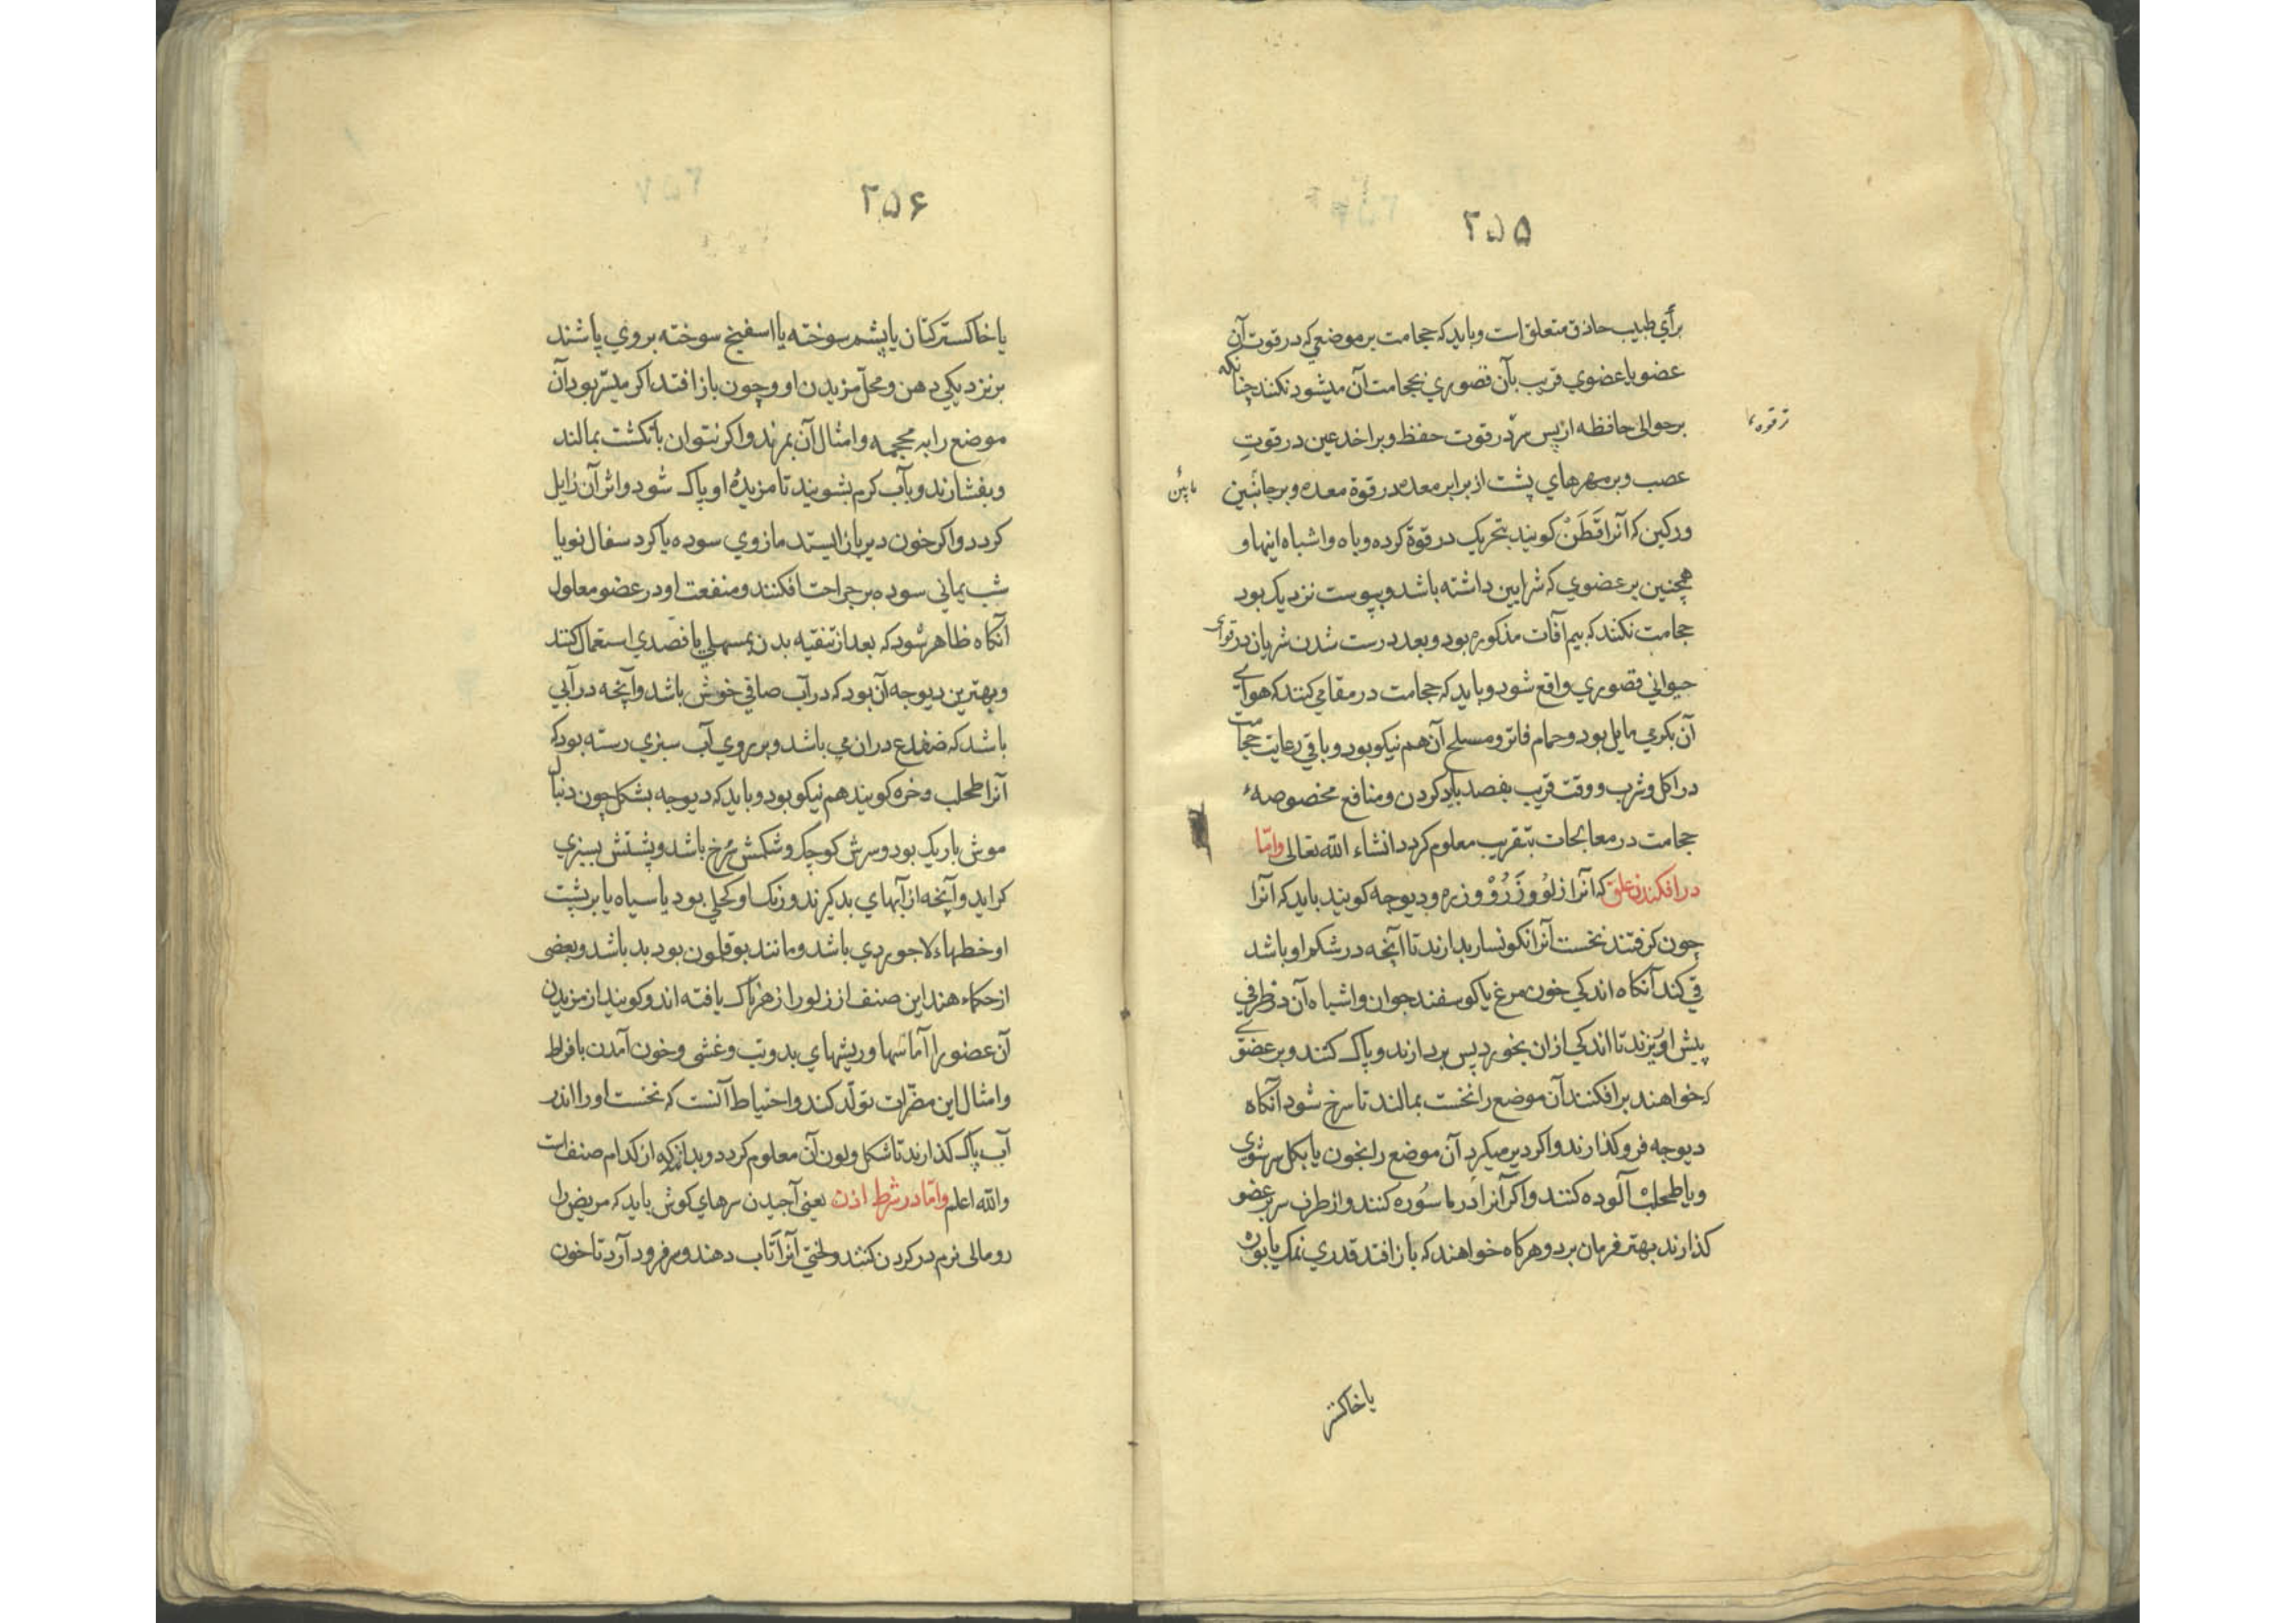 ۲۵۵
برأي طبیب حاذق متعلق است و باید که حجامت بر موضعي که در قوت آن
عضو یا عضوي قریب بآن قصوري بحجامت آن میشود نکنند چنانکه
بر حوالی حافظه از پس سر در قوت حفظ و بر اخدعین در قوتِ
عصب و بر مهرهاي پشت از برابر معده در قوة معده و بر جانبین
مابین
ورکین که آنرا قَطَنْ کویند بتحریک در قوة کرده و باه و اشباه اینها و
همچنین بر عضوي که شرایین داشته باشد و بپوست نزدیک بود
حجامت نکنند که بیم آفات مذکوره بود و بعد درست شدن شریان در قواي
حیواني قصوري واقع شود و باید که حجامت در مقامي کنند که هواي
آن بکرمي مایل بود و حمام فاتر و مسلح آن هم نیکو بود و باقي رعایت حجامت
در اکل و شرب و وقت قریب بفصد باید کردن و منافع مخصوصهٔ
حجامت در معالجات بتقریب معلوم کردد انشاء الله تعالی وامّا
در افکندن علق که آنرا زلو و زَرُوْ و زره و دیوجه کویند باید که آنرا
چون کرفتند نخست آنرا نکونسار بدارند تا آنچه در شکم او باشد
قي کند آنکاه اندکي خون مرغ یا کوسفند جوان و اشباه آن در ظرفي
پیش او ریزند تا اندکي ازان بخورد پس بردارند و پاک کنند و بر عضوي
که خواهند برافکنند آن موضع را نخست بمالند تا سرخ شود آنکاه
دیوجه فروکذارند و اکر دیر میکرد آن موضع را بخون یا بکل سرشوي
و یا طحلب آلوده کنند و اکر آنرا در ماسُوره کنند و از طرف سر بر عضو
کذارند بهتر فرمان برد و هرکاه خواهند که بازافتد قدري نمک یا بوره
یا خاکستر
۲۵۶
یا خاکستر کتان یا پشم سوخته یا اسفنج سوخته بر وي پاشند
بر نزدیکي دهن و محل مزیدن او و چون باز افتد اکر میسّر بود آن
موضع را به محجمه و امثال آن بمزند و اکر نتوان بانکشت بمالند
و بفشارند و بآب کرم بشویند تا مزیدهٔ او پاک شود و اثر آن زایل
کردد و اکر خون دیر باز ایستد مازوي سوده یا کرد سفال نو یا
شب یماني سوده بر جراحت افکنند و منفعت او در عضو معلول
آنکاه ظاهر شود که بعد از تنقیه بدن بمسهلي یا فصدي استعمال کنند
و بهترین دیوجه آن بود که در آب صافي خوش باشد و آنچه در آبي
باشد که ضفدع دران مي باشد و بر روي آب سبزي رسته بود که
آنرا طحلب و خره کویند هم نیکو بود و باید که دیوجه بشکل چون دنبال
موش باریک بود و سرش کوچک و شکمش سرخ باشد و پشتش بسبزي
کراید و آنچه از آبهاي بد کیرند و رنک او کحلي بود یا سیاه یا بر پشت
او خطهاء لاجوردي باشد و مانند بوقلمون بود بد باشد و بعضی
از حکماء هند این صنف از زلو را زهرناک یافته اند و کویند از مزیدن
آن عضو را آماسها و ریشهاي بد و تب و غشی و خون آمدن بافراط
و امثال این مضرّات تولّد کند و احتیاط آنست که نخست او را اندر
آب پاک کذارند تا شکل و لون آن معلوم کردد و بدانند که از کدام صنف است
والله اعلم وامّا در شرط اذن یعنی آجیدن سرهاي کوش باید که مریض را
رومالی نرم در کردن کنند و لختي آنرا تاب دهند و سر فرود آرد تا خون